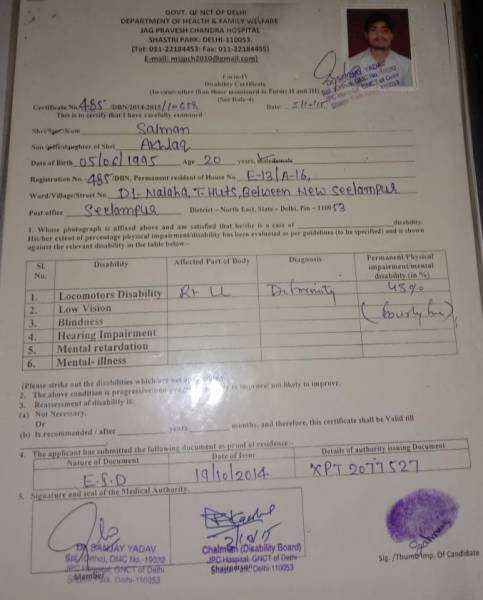 GOVT. OF NCT OF DELHI
DEPARTMENT OF HEALTH & FAMILY WELFARE
JAG PRAVESH CHANDRA HOSPITAL
SHASTRI PARK: DELHI-110053.
(Tel: 011-22184453: Fax: 011-22184455)
E-mail: msjpch2010@gmail.com)
Form-IV
Disability Certificate
(In cases other than those mentioned in Forms II and III)
(See Rule-4)
Certificate No. 485 /DBN/2014-2015/ Date
This is to certify that I have carefully examined
Salman
Akhlaq
Date of Birth 05/06/1995 Age 20 years,
Registration No. 485/DBN, Permanent resident of House No. E-13/A-16,
Ward/Village/Street No. D1-Nalaha, T.Huts, Between New Seelampur
Post office Seelampur District – North East, State – Delhi, Pin – 110053
1. Whose photograph is affixed above and am satisfied that he/she is a case of disability.
His/her extent of percentage physical impairment/disability has been evaluated as per guidelines (to be specified) and is shown
against the relevant disability in the table below:-
Sl. No. Disability Affected Part of Body Diagnosis Permanent Physical impairment/mental disability (in %)
1. Locomotors Disability Rt LL Deformity 45%
2. Low Vision
3. Blindness
4. Hearing Impairment
5. Mental retardation
6. Mental- illness
(Please strike out the disabilities which are not
2. The above condition is progressive/non to improve/ not likely to improve.
3. Reassessment of disability is:
(a) Not Necessary,
Or
(b) Is recommended / after years months, and therefore, this certificate shall be Valid till
4. The applicant has submitted the following document as proof of residence:-
Nature of Document Date of Issue Details of authority issuing Document
19/10/2014 XPT 2077527
5. Signature and seal of the Medical Authority.
DR SANJAY YADAV
Spl. (Ortho), DMC No.-19032
JPC Hospital, GNCT of Delhi
Shastri Park, Delhi-110053
Member
Chairman (Disability Board)
JPC Hospital, GNCT of Delhi
Shastri Park, Delhi-110053
Sig. /Thumb Imp. Of Candidate